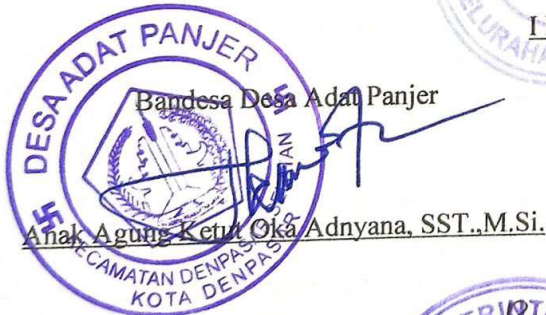 DESA ADAT PANJER
KECAMATAN DENPASAR SELATAN
KOTA DENPASAR
Bandesa Desa Adat Panjer
Anak Agung Ketut Oka Adnyana, SST.,M.Si.
I